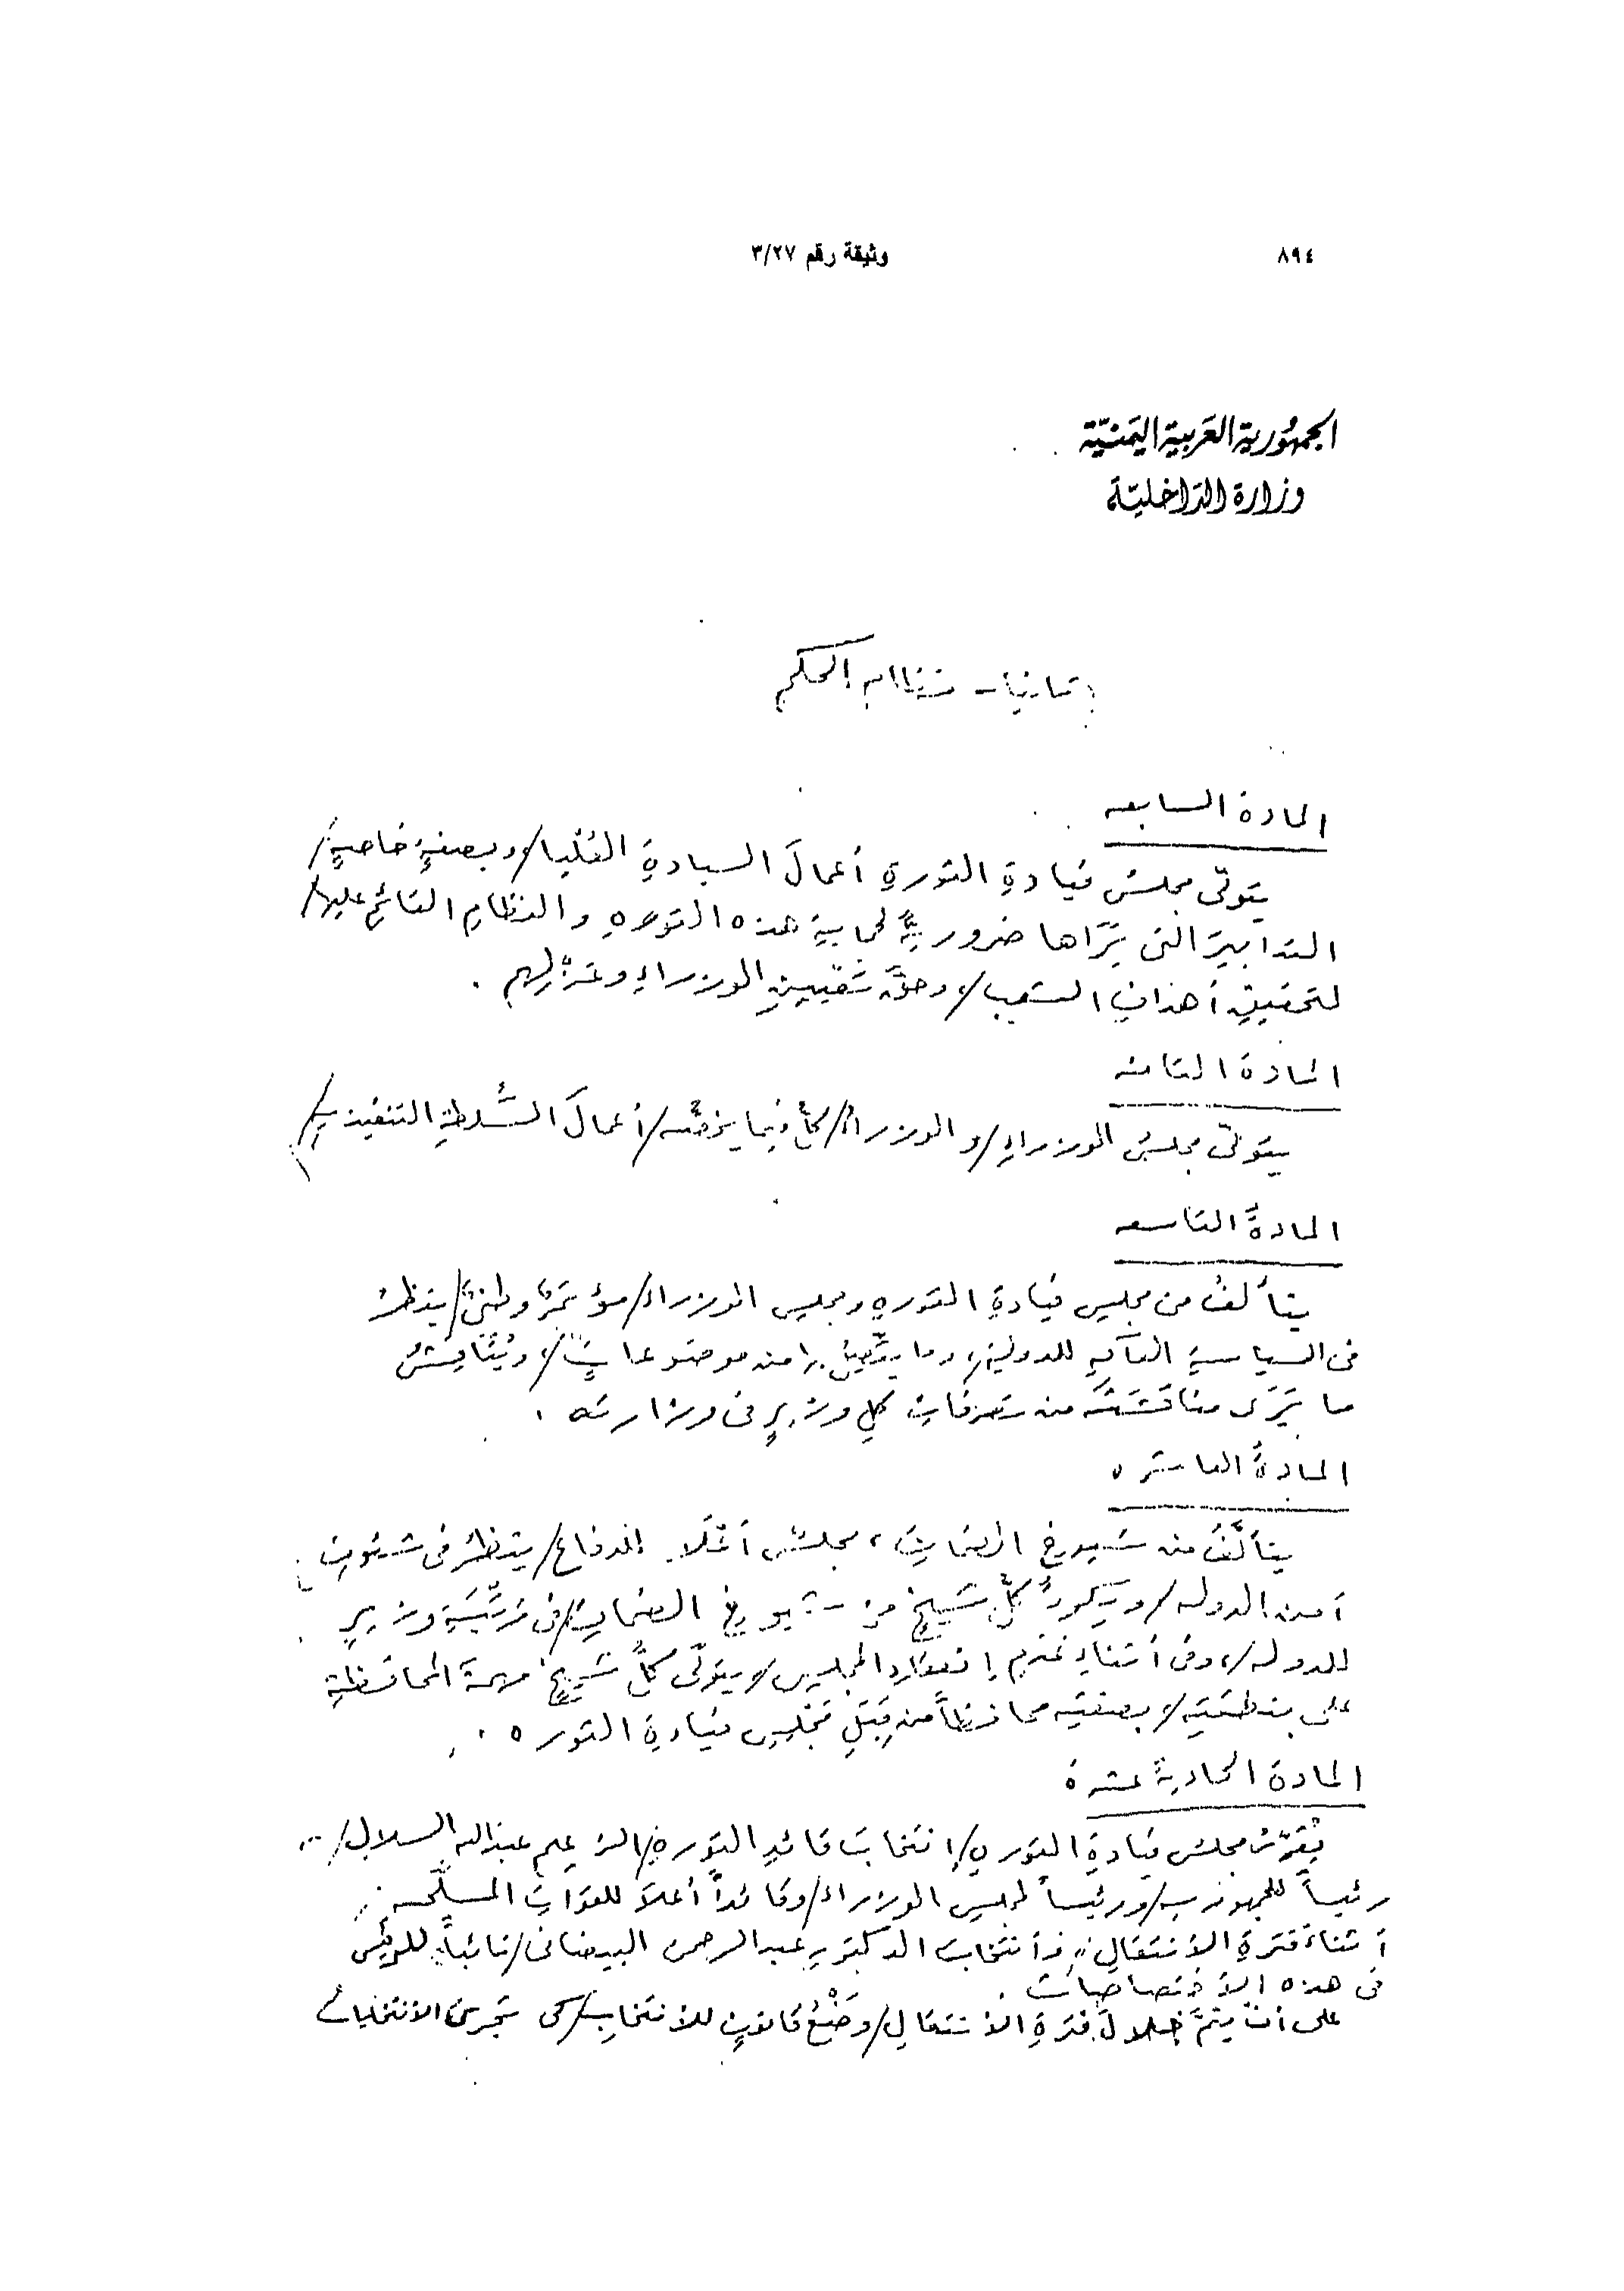 ٨٩٤
وثيقة رقم ٣/٢٧
الجمهُورية العَربية اليَمنيّة
وزارة الدّاخليّة
ثانيا - نظام الحكم
المادة السابعه
يتولّى مجلسُ قيادةِ الثورةِ أعمالَ السيادةِ العُليا/، وبصفةٍ خاصةٍ/
التدابيرَ التى يَرَاها ضروريةً لحمايةِ هذه الثورهِ والنظامِ القائمِ عليها/
لتحقيقِ أهدافِ الشعب/، وحقَّ تعْيينِ الوزراءِ وعَزْلِهم .
المادة الثامنه
يتولّى مجلسُ الوزراءِ/ والوزراءُ/ كلٌّ فيما يخصُّه/ أعمالَ السُّلطةِ التنفيذيةِ/
المادةُ التاسعه
يتألفُ من مجلسِ قيادةِ الثورهِ ومجلسِ الوزراء/ مؤتمرٌ وطنىٌّ/ ينظرُ
فى السياسةِ العامهِ للدولةِ/، وما يتعلقُ بها من موضوعاتٍ/، ويُناقِشُ
ما يَرَى مناقَشَتَه من تصرفاتِ كلِ وزيرٍ فى وزارته .
المادةُ العاشره
يتألَّفُ من شيوخِ الضمانِ، مجلسٌ أعْلَا للدفاع/ ينظرُ فى شئونِ
أمنِ الدوله/ ويكونُ كلُّ شيخٍ من شيوخِ الضمانِ/ فى مرتبةِ وزيرٍ
للدوله/، وفى أثناءِ عَدَمِ إنعقادِ المجلسِ/ يتولّى كلُّ شيخٍ مهمةَ المحافظةِ
على منطقتِه/ بصفتِه محافظاً من قِبَلِ مجْلسِ قيادةِ الثوره .
المادة الحاديةَ عشرةَ
يُقرّرُ مجلسُ قيادةِ الثورهِ/ إنتخابَ قائدِ الثورةِ/ الزعيم عبدالله السلال/
رئيساً للجمهوريه/ ورئيساً لمجلسِ الوزراء/ وقائداً أعلاَ للقواتِ المسلَّحه
أثناءَ فترةِ الأنتقالِ/ وأنتخابَ الدكتورِ عبدالرحمن البيضانى/ نائباً للرئيسِ
فى هذه الأختصاصات .
على أنْ يتمَّ خلالَ فترةِ الأنتقالِ/ وضْعُ قانونٍ للأنتخابِ/ كى تجرىَ الأنتخاباتُ